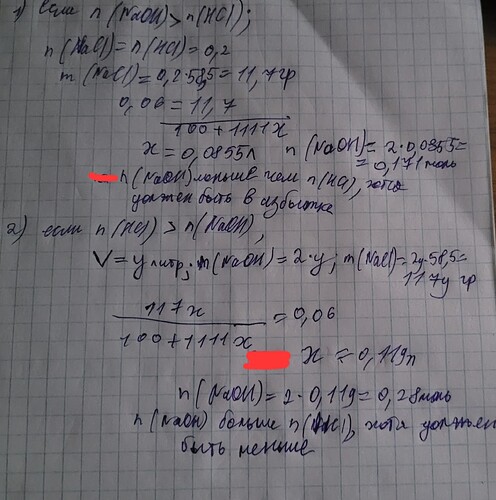 1) если n(NaOH)>n(HCl);
n(NaCl)=n(HCl)=0,2
m(NaCl)=0,2·58,5=11,7гр
0,06 = 11,7
100+1111x
x=0,0855л n(NaOH)=2·0,0855=
=0,171моль
n(NaOH) меньше чем n(HCl), хотя
должен быть в избытке
2) если n(HCl) > n(NaOH),
V=y литр; m(NaOH)=2·y; m(NaCl)=2y·58,5=
117y гр
117x
=0,06
100+1111x
x=0,119л
n(NaOH)=2·0,119=0,28моль
n(NaOH) больше n(HCl), хотя должен
быть меньше